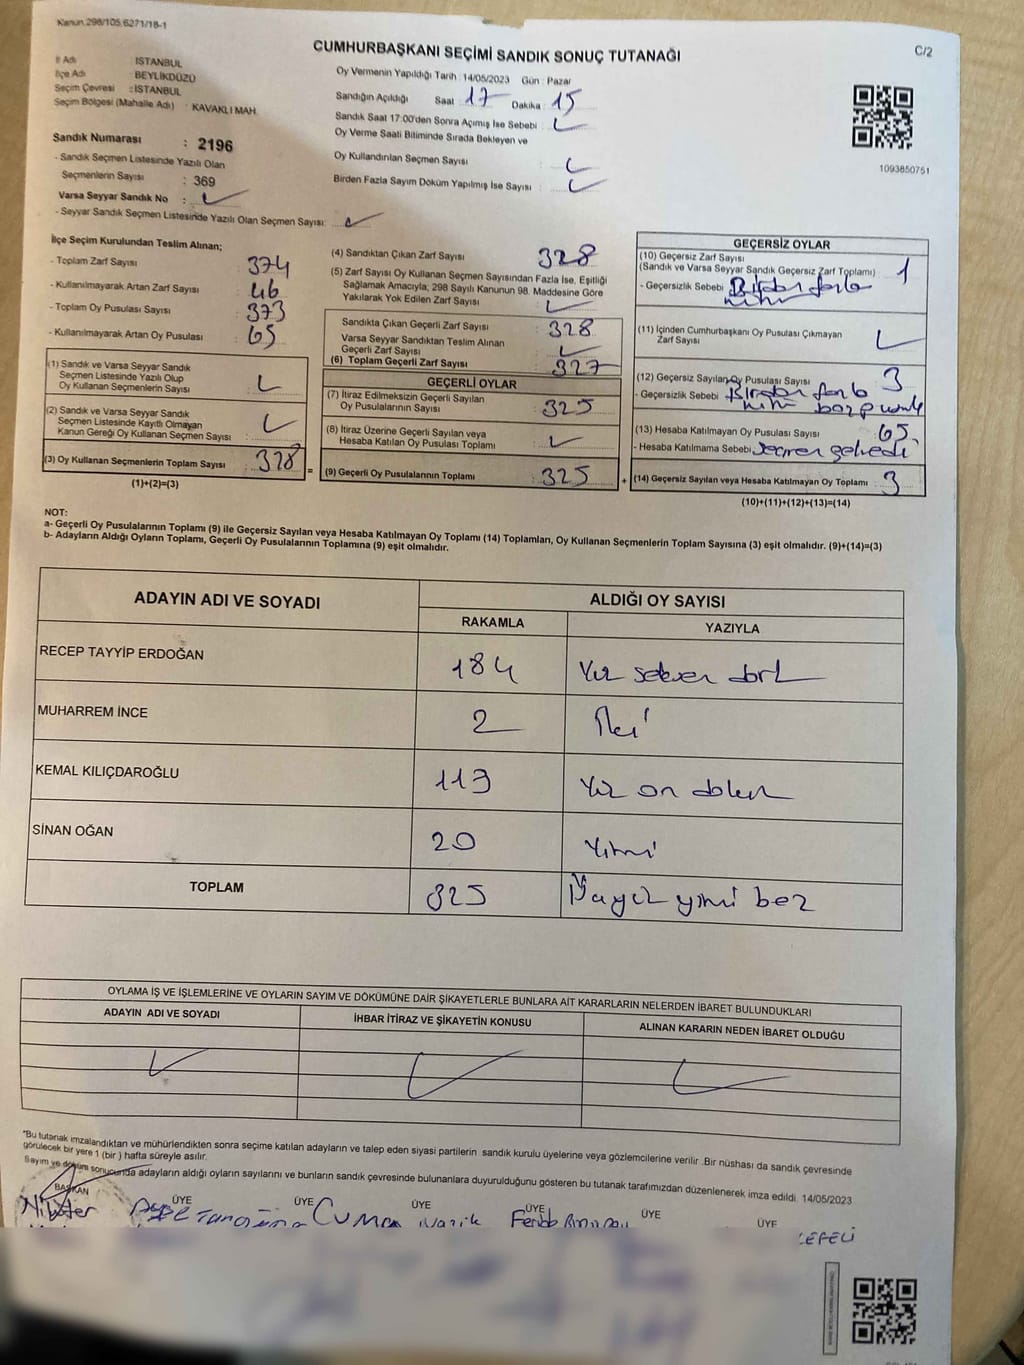 Kanun 298/105,6271/18-1
C/2
CUMHURBAŞKANI SEÇİMİ SANDIK SONUÇ TUTANAĞI
İl Adı : İSTANBUL
İlçe Adı : BEYLİKDÜZÜ
Seçim Çevresi : İSTANBUL
Seçim Bölgesi (Mahalle Adı) : KAVAKLI MAH
Sandık Numarası : 2196
- Sandık Seçmen Listesinde Yazılı Olan
Seçmenlerin Sayısı : 369
Varsa Seyyar Sandık No :
- Seyyar Sandık Seçmen Listesinde Yazılı Olan Seçmen Sayısı:
Oy Vermenin Yapıldığı Tarih : 14/05/2023 Gün : Pazar
Sandığın Açıldığı Saat : 17 Dakika : 15
Sandık Saat 17:00'den Sonra Açımış İse Sebebi :
Oy Verme Saati Bitiminde Sırada Bekleyen ve
Oy Kullandırılan Seçmen Sayısı :
Birden Fazla Sayım Döküm Yapılmış İse Sayısı :
1093850751
İlçe Seçim Kurulundan Teslim Alınan;
- Toplam Zarf Sayısı : 374
- Kullanılmayarak Artan Zarf Sayısı : 46
- Toplam Oy Pusulası Sayısı : 373
- Kullanılmayarak Artan Oy Pusulası : 65
(1) Sandık ve Varsa Seyyar Sandık
Seçmen Listesinde Yazılı Olup
Oy Kullanan Seçmenlerin Sayısı :
(2) Sandık ve Varsa Seyyar Sandık
Seçmen Listesinde Kayıtlı Olmayan
Kanun Gereği Oy Kullanan Seçmen Sayısı :
(3) Oy Kullanan Seçmenlerin Toplam Sayısı : 328 =
(1)+(2)=(3)
(4) Sandıktan Çıkan Zarf Sayısı : 328
(5) Zarf Sayısı Oy Kullanan Seçmen Sayısından Fazla İse, Eşitliği
Sağlamak Amacıyla, 298 Sayılı Kanunun 98. Maddesine Göre
Yakılarak Yok Edilen Zarf Sayısı :
Sandıkta Çıkan Geçerli Zarf Sayısı : 328
Varsa Seyyar Sandıktan Teslim Alınan
Geçerli Zarf Sayısı :
(6) Toplam Geçerli Zarf Sayısı : 327
GEÇERLİ OYLAR
(7) İtiraz Edilmeksizin Geçerli Sayılan
Oy Pusulalarının Sayısı : 325
(8) İtiraz Üzerine Geçerli Sayılan veya
Hesaba Katılan Oy Pusulası Toplamı :
(9) Geçerli Oy Pusulalarının Toplamı : 325 +
GEÇERSİZ OYLAR
(10) Geçersiz Zarf Sayısı
(Sandık ve Varsa Seyyar Sandık Geçersiz Zarf Toplamı) : 1
- Geçersizlik Sebebi : Birden fazla
(11) İçinden Cumhurbaşkanı Oy Pusulası Çıkmayan
Zarf Sayısı :
(12) Geçersiz Sayılan Oy Pusulası Sayısı : 3
- Geçersizlik Sebebi : Birden fazla
(13) Hesaba Katılmayan Oy Pusulası Sayısı : 65
- Hesaba Katılmama Sebebi : seçmen gelmedi
(14) Geçersiz Sayılan veya Hesaba Katılmayan Oy Toplamı : 3
(10)+(11)+(12)+(13)=(14)
NOT:
a- Geçerli Oy Pusulalarının Toplamı (9) ile Geçersiz Sayılan veya Hesaba Katılmayan Oy Toplamı (14) Toplamları, Oy Kullanan Seçmenlerin Toplam Sayısına (3) eşit olmalıdır. (9)+(14)=(3)
b- Adayların Aldığı Oyların Toplamı, Geçerli Oy Pusulalarının Toplamına (9) eşit olmalıdır.
ADAYIN ADI VE SOYADI ALDIĞI OY SAYISI
RAKAMLA YAZIYLA
RECEP TAYYİP ERDOĞAN 184 Yüz seksen dört
MUHARREM İNCE 2 İki
KEMAL KILIÇDAROĞLU 119 Yüz on dokuz
SİNAN OĞAN 20 Yirmi
TOPLAM 325 Üçyüz yirmi beş
OYLAMA İŞ VE İŞLEMLERİNE VE OYLARIN SAYIM VE DÖKÜMÜNE DAİR ŞİKAYETLERLE BUNLARA AİT KARARLARIN NELERDEN İBARET BULUNDUKLARI
ADAYIN ADI VE SOYADI İHBAR İTİRAZ VE ŞİKAYETİN KONUSU ALINAN KARARIN NEDEN İBARET OLDUĞU
*Bu tutanak imzalandıktan ve mühürlendikten sonra seçime katılan adayların ve talep eden siyasi partilerin sandık kurulu üyelerine veya gözlemcilerine verilir .Bir nüshası da sandık çevresinde
görülecek bir yere 1 (bir ) hafta süreyle asılır.
Sayım ve döküm sonucunda adayların aldığı oyların sayılarını ve bunların sandık çevresinde bulunanlara duyurulduğunu gösteren bu tutanak tarafımızdan düzenlenerek imza edildi. 14/05/2023
BAŞKAN ÜYE ÜYE ÜYE ÜYE ÜYE ÜYE